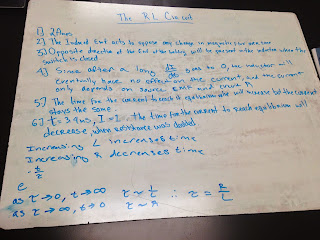 The RL Circuit
1] 2 Ohms
2] The Induced Emf acts to oppose any change in magnetic flux over time
3] Opposite direction of the Emf of the battery will be present in the inductor when the switch is closed
4] Since after a long di/dt goes to 0, the inductor will
eventually have no effect on the current, and the current
only depends on source EMF and circuit R.
5] The time for the current to reach equilibrium will increase but the current
stays the same.
6] t = 3.9ms, I = 1. the time for the current to reach equilibrium will
decrease, when resistance was doubled
Increasing L increases time
Increasing R decreases time
e
as τ → 0, t → ∞ τ ~ ∴ τ =
as τ → ∞, t → 0 τ ~ R